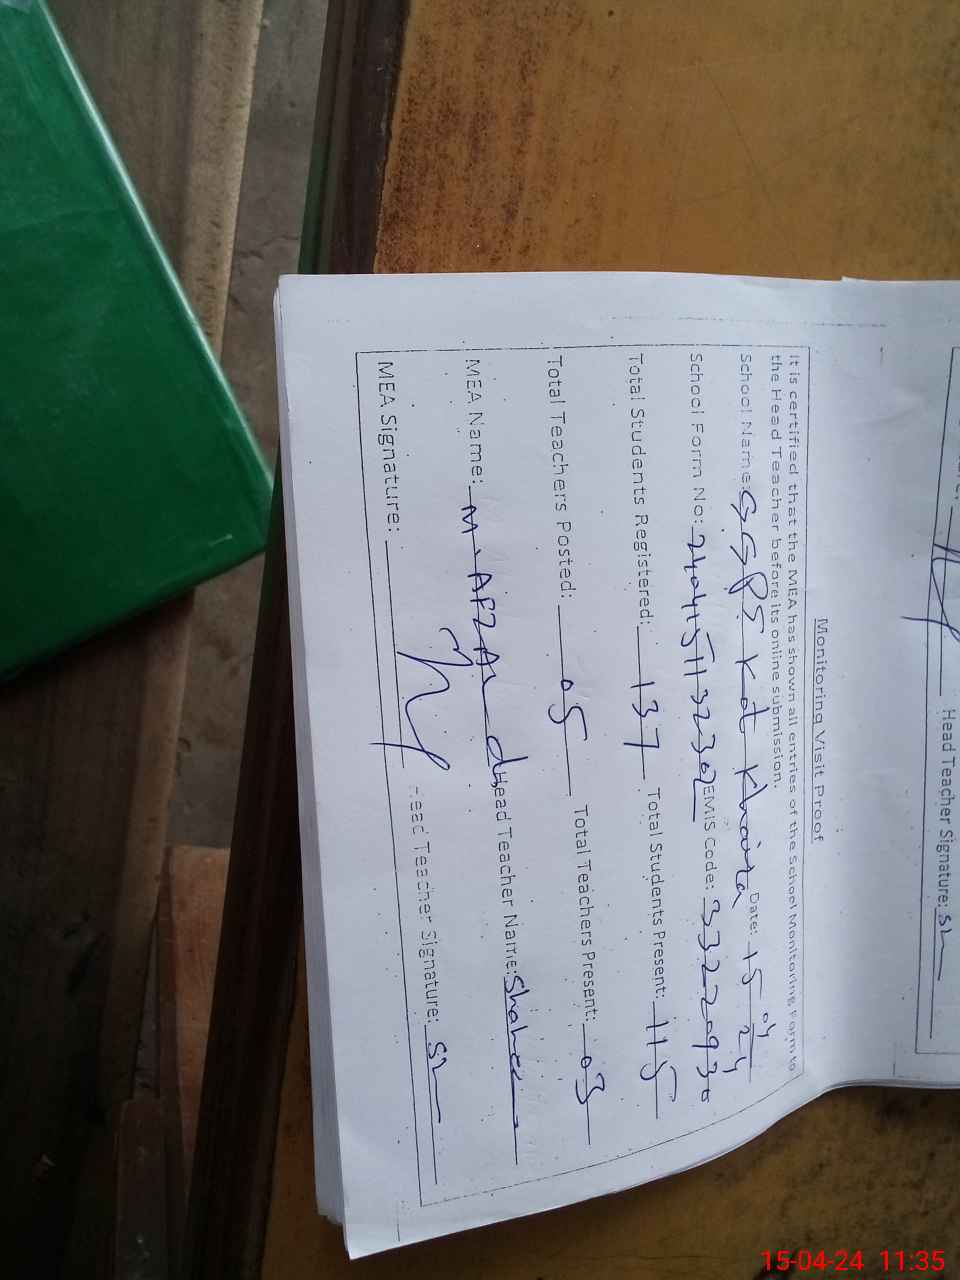 Head Teacher Signature: Sh
Monitoring Visit Proof
It is certified that the MEA has shown all entries of the School Monitoring Form to
the Head Teacher before its online submission.
School Name: GGPS Kot Khaira Date: 15/04/24
School Form No: EMIS Code: 33220930
Total Students Registered: 137 Total Students Present: 115
Total Teachers Posted: 05 Total Teachers Present: 03
MEA Name: M. AFZAL Head Teacher Name:
MEA Signature: Head Teacher Signature: Sh
15-04-24 11:35